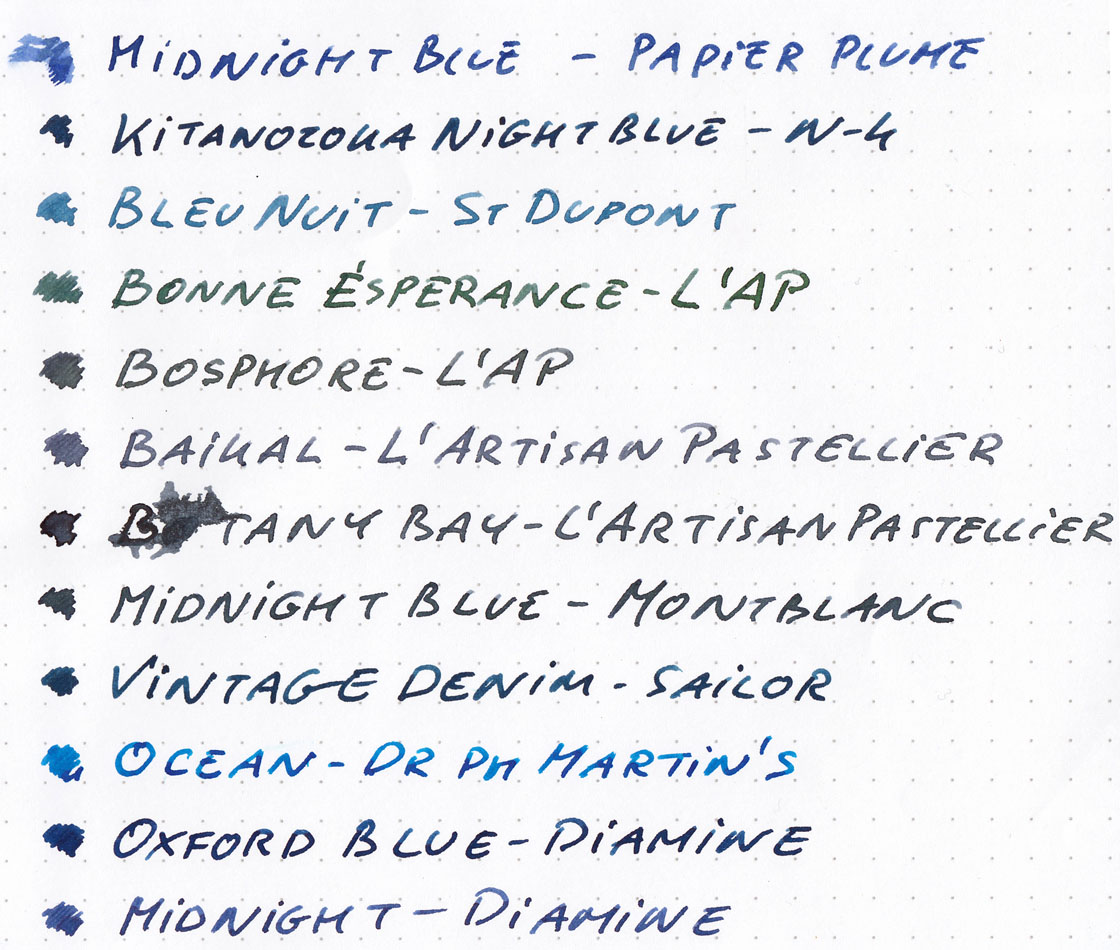 MiDNiGHT BLUE - PAPiER PLUME
KiTANOZOKA NiGHT BLUE - N-4
BLEU NUiT - ST DUPONT
BONNE ÉSPERANCE - L'AP
BOSPHORE - L'AP
BAiKAL - L'ARTiSAN PASTELLiER
BOTANY BAY - L'ARTiSAN PASTELLiER
MiDNiGHT BLUE - MONTBLANC
ViNTAGE DENiM - SAiLOR
OCEAN - DR PH MARTiN'S
OXFORD BLUE - DiAMiNE
MiDNiGHT - DiAMiNE